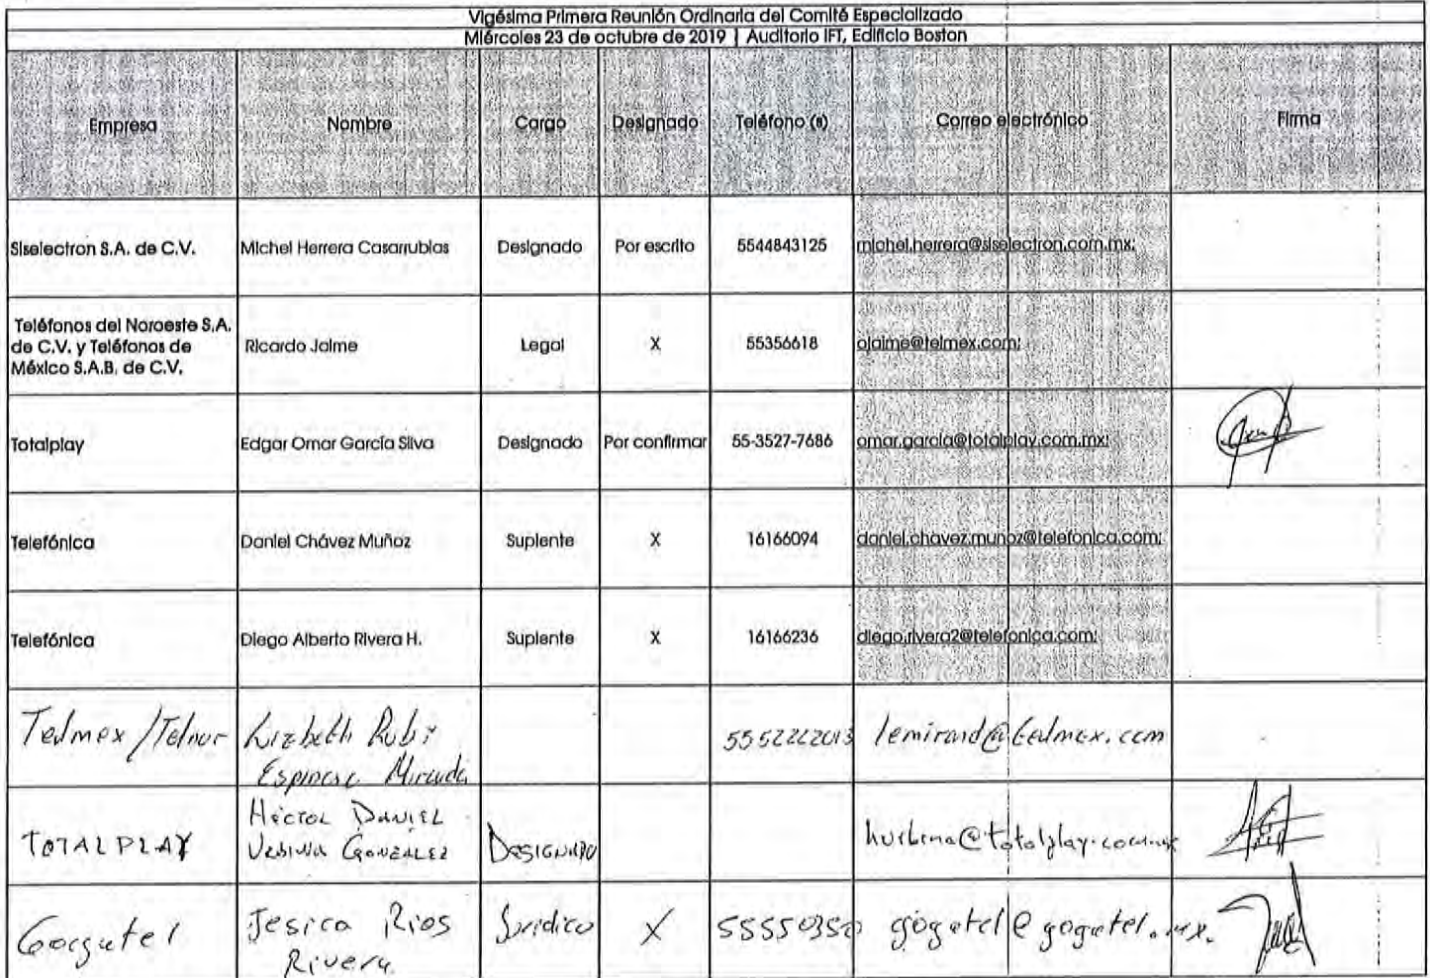 Vigésima Primera Reunión Ordinaria del Comité Especializado
Miércoles 23 de octubre de 2019 | Auditorio IFT, Edificio Boston
Empresa Nombre Cargo Designado Teléfono (s) Correo electrónico Firma
Siselectron S.A. de C.V. Michel Herrera Casarrubias Designado Por escrito 5544843125 michel.herrera@siselectron.com.mx;
Teléfonos del Noroeste S.A.
de C.V. y Teléfonos de
México S.A.B. de C.V.
Ricardo Jaime Legal X 55356618 ojaime@telmex.com;
Totalplay Edgar Omar García Silva Designado Por confirmar 55-3527-7686 omar.garcia@totalplay.com.mx;
Telefónica Daniel Chávez Muñoz Suplente X 16166094 daniel.chavez.munoz@telefonica.com;
Telefónica Diego Alberto Rivera H. Suplente X 16166236 diego.rivera2@telefonica.com;
Telmex/Telnor Lizbeth Rubi 5552222013 lemirand@telmex.com
Espinosa Miranda
Héctor Daniel
TOTALPLAY Urbina González Designado hurbina@totalplay.com.mx
Jesica Rios Jurídico X 55550350 gogatel@gogatel.mx.
Rivera